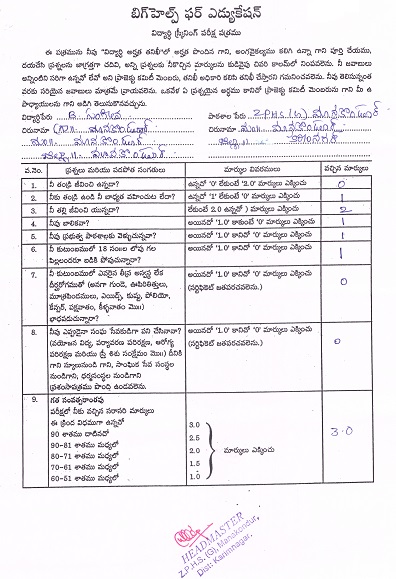 బిగ్‌హెల్ప్ ఫర్ ఎడ్యుకేషన్
విద్యార్థి స్క్రీనింగ్ పరీక్ష పత్రము
ఈ పత్రమును నీవు "విద్యార్థి అర్హత తనిఖీ"లో అర్హత పొందిన గాని, అంగవైకల్యము కలిగి ఉన్నా గాని పూర్తి చేయుము,
దయచేసి ప్రశ్నలను జాగ్రత్తగా చదివి, అన్ని ప్రశ్నలకు నీకొచ్చిన మార్కులను కుడివైపు చివరి కాలమ్‌లో నింపవలెను. నీ జవాబులు
అన్నింటిని సరిగా ఉన్నవో లేవో అని ప్రాజెక్టు కమిటీ మెంబరు, తనిఖీ అధికారి కలిసి తనిఖీ చేస్తారని గమనించవలెను. నీవు తెలిసినంతవరకు
సరియైన జవాబులు మాత్రమే వ్రాయవలెను. ఒకవేళ ఏ ప్రశ్నయైన అర్థము కానిచో ప్రాజెక్ట్ కమిటీ మెంబరును గాని మీ ఉ
పాధ్యాయులను గాని అడిగి తెలుసుకొనవచ్చును.
విద్యార్థిపేరు B. పాఠశాల పేరు Z.P.H.S (G) మానకొండూర్
చిరునామా మానకొండూర్ చిరునామా మానకొండూర్
వ.నెం. ప్రశ్నలు మరియు పడపోత సంగతులు మార్కుల వివరములు వచ్చిన మార్కులు
1. నీ తండ్రి జీవించి ఉన్నడా? ఉన్నచో '0' లేకుంటే '2.0' మార్కులు ఎక్కించు 0
2. నీకు తండ్రి ఉండి నీ బాధ్యత వహించుట లేదా? ఉన్నచో '1' లేకుంటే '0' మార్కులు ఎక్కించు 1
3. నీ తల్లి జీవించి యున్నదా? లేకుంటే 2.0 ఉన్నచో ) మార్కులు ఎక్కించు 2
4. నీవు బాలికవా? అయినచో '1.0' కాకుంటే '0' మార్కులు ఎక్కించు 1
5. నీవు ప్రభుత్వ పాఠశాలకు వెళ్ళుచున్నవా? అయినచో '1.0' కానిచో '0' మార్కులు ఎక్కించు 1
6. నీ కుటుంబములో 18 సంఐల లోపు గల
పిల్లలందరూ బడికి పోవుచున్నారా? అయినచో '1.0' కానిచో '0' మార్కులు ఎక్కించు 1
7. నీ కుటుంబములో ఎవరైన తీవ్ర అస్వస్థ లేక
దీర్ఘరోగముతో (అనగా గుండె, ఊపిరితిత్తులు,
మూత్రపిండములు, ఎయిడ్స్, కుష్ఠు, పోలియో,
కేన్సర్, పక్షవాతం, కీళ్ళవాతం మొ॥)
బాధపడుచున్నారా? అయినచో '1.0' కానిచో '0' మార్కులు ఎక్కించు
(సర్టిఫికెట్ జతపరచవలెను.) 0
8. నీవు ఎప్పుడైనా సంఘ సేవకుడిగా పని చేసినావా?
(వయోజన విద్య, పర్యావరణ పరిరక్షణ, ఆరోగ్య
పరిరక్షణ మరియు స్త్రీ శిశు సంక్షేమం మొ॥) దీనికి
గాని స్కూలునుండి గాని, సాంఘిక సేవ సంస్థల
నుండిగాని, ధర్మసంస్థల నుండిగాని
ప్రశంసాపత్రము పొంది ఉండవలెను. అయినచో '1.0' కానిచో '0' మార్కులు ఎక్కించు
(సర్టిఫికెట్ జతపరచవలెను.) 0
9. గత సంవత్సరాంతపు
పరీక్షలో నీకు వచ్చిన సరాసరి మార్కులు
ఈ క్రింద విధముగా ఉన్నచో
90 శాతము దాటినచో 3.0
80-81 శాతము మధ్యలో 2.5
80-71 శాతము మధ్యలో 2.0 మార్కులు ఎక్కించు 3.0
70-61 శాతము మధ్యలో 1.5
60-51 శాతము మధ్యలో 1.0
HEADMASTER
Z.P.H.S. (G), Manakondur,
Dist: Karimnagar.